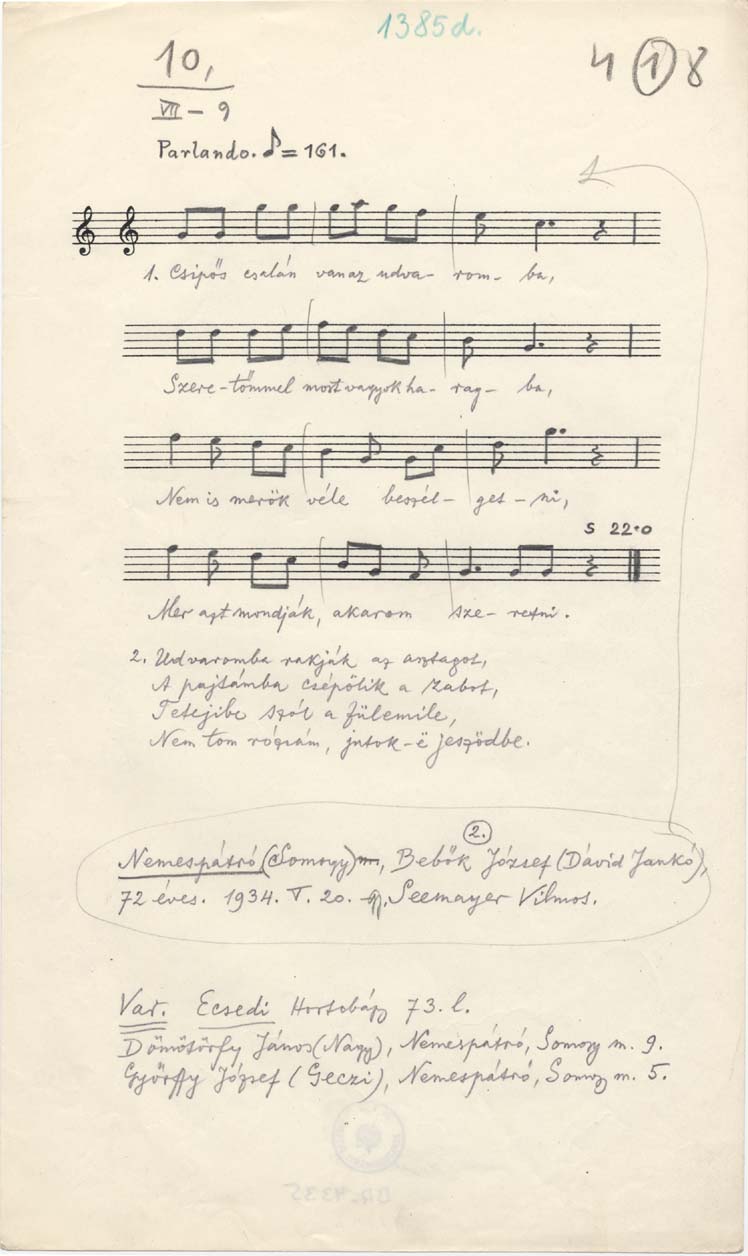 1385d.
10,
4 1 8
VII – 9
Parlando. ♪ = 161.
1. Csipős csalán van az udva- rom- ba,
Szere-tőmmel most vagyok ha- rag- ba,
Nem is merök véle beszél- get - ni,
S 22·0
Mer azt mondják, akarom sze- retni.
2. Udvaromba rakják az asztagot,
A pajtámba csépölik a zabot,
Tetejibe szól a fülemile,
Nem tom rózsám, jutok-ë jeszödbe.
2.
Nemespátró (Somogy), Bebők József (Dávid Jankó),
72 éves. 1934. V. 20. Seemayer Vilmos.
Var. Ecsedi Hortobágy 73. l.
Dömötörfy János (Nagy), Nemespátró, Somogy m. 9.
Györffy József (Geczi), Nemespátró, Somogy m. 5.